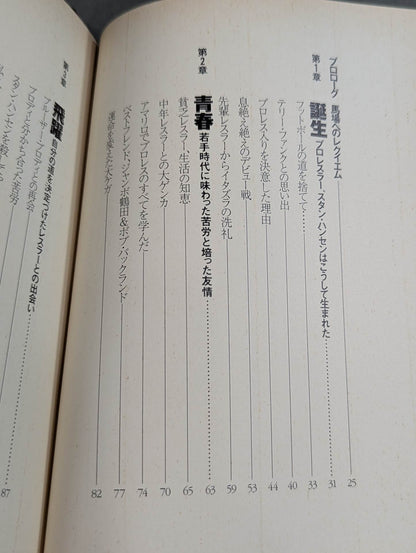 プロローグ 馬場へのレクイエム……25
第1章 誕生 プロレスラー、スタン・ハンセンはこうして生まれた……31
フットボールの道を捨てて……33
テリー・ファンクとの思い出……40
プロレス入りを決意した理由……44
息絶え絶えのデビュー戦……53
先輩レスラーからイタズラの洗礼……59
第2章 青春 若手時代に味わった苦労と培った友情……63
貧乏レスラー、生活の知恵……65
中年レスラーとの大ゲンカ……70
アマリロでプロレスのすべてを学んだ……74
ベストフレンド、ジャンボ鶴田&ボブ・バックランド……77
運命を変えた大ケガ……82
第3章 飛躍 自分の道を決定づけたレスラーとの出会い……87
ブルーザー・ブロディとの再会
ブロディと分かち合った苦労
スタン・ハンセンを